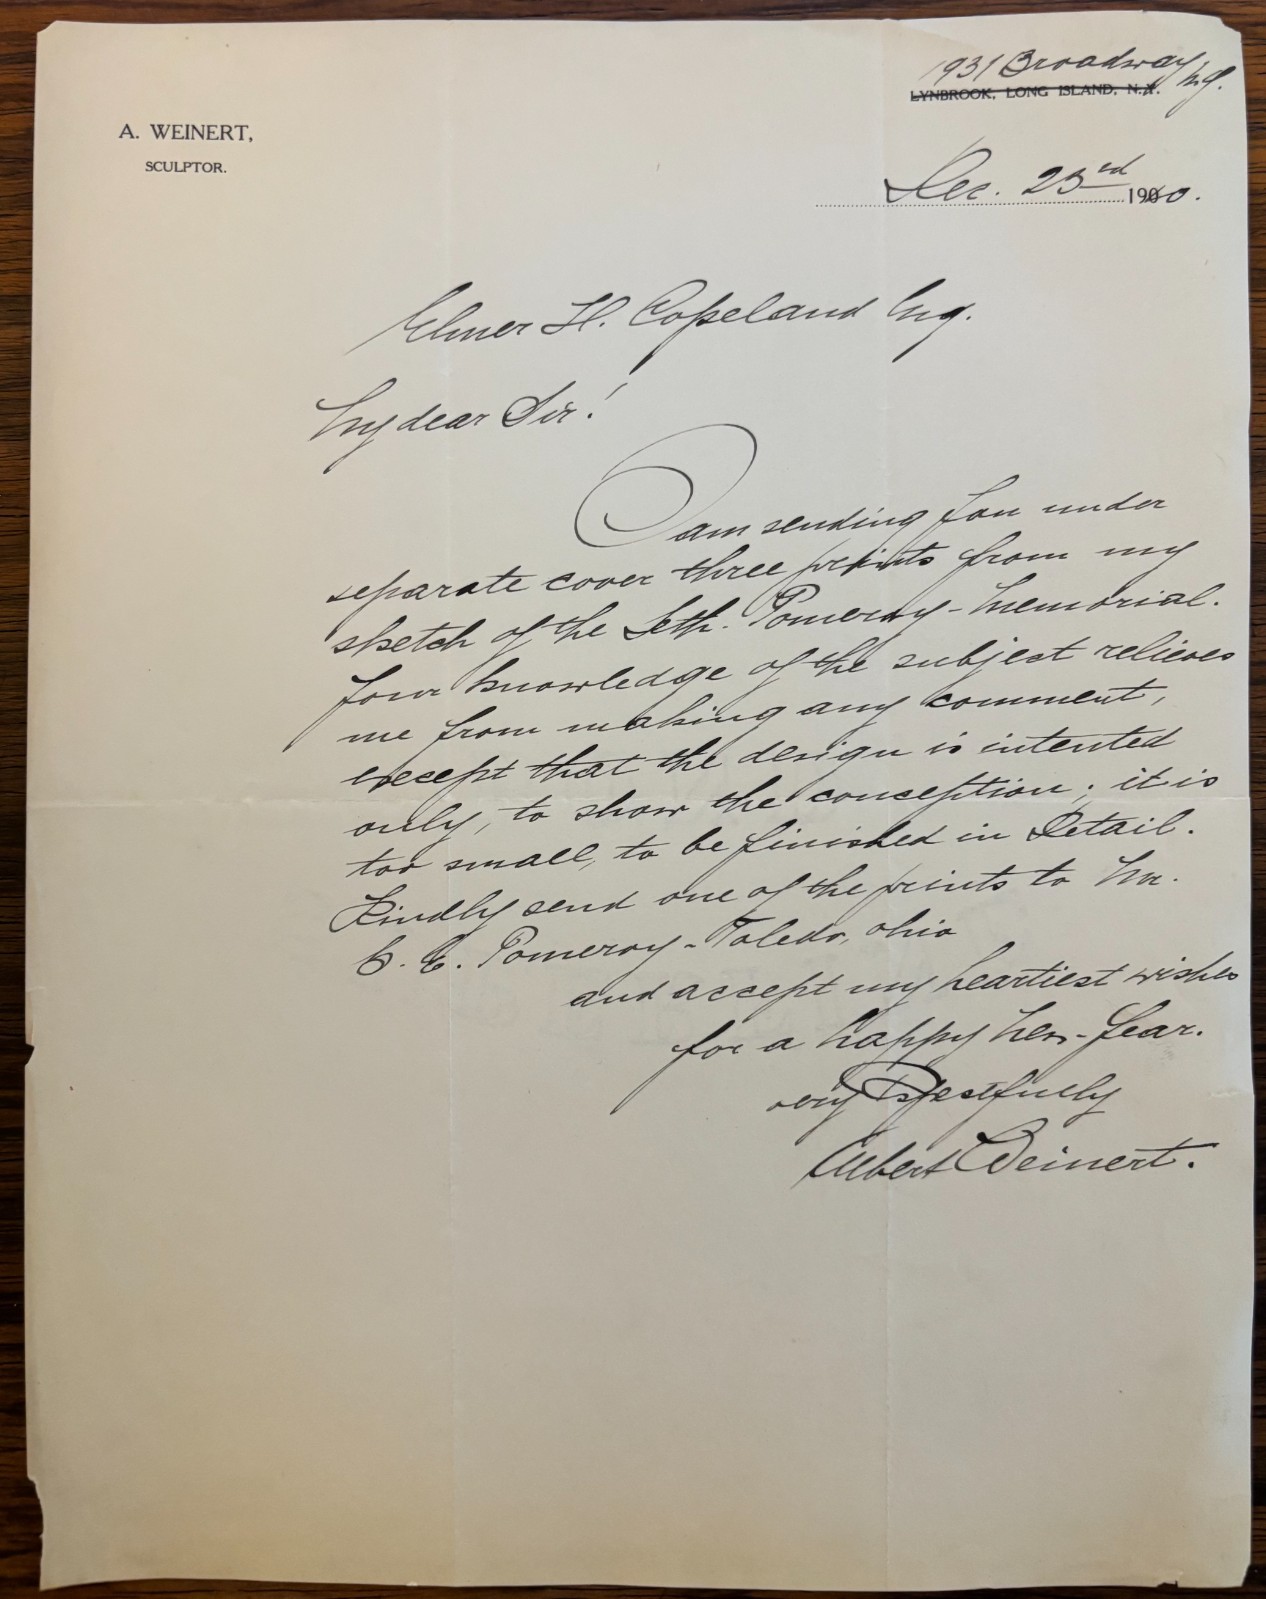 1931 Broadway N.Y.
LYNBROOK, LONG ISLAND, N.Y.
A. WEINERT,
SCULPTOR.
Dec. 23rd 1910.
Elmer H. Copeland Esq.
My dear Sir!
I am sending You under
separate cover three prints from my
sketch of the Seth. Pomeroy-Memorial.
Your knowledge of the subject relieves
me from making any comment,
except that the design is intented
only, to show the conception; it is
too small, to be finished in Detail.
Kindly send one of the prints to Mr.
Pomeroy - Toledo, Ohio
and accept my heartiest wishes
for a happy New-Year.
very Respectfully
Albert Weinert.